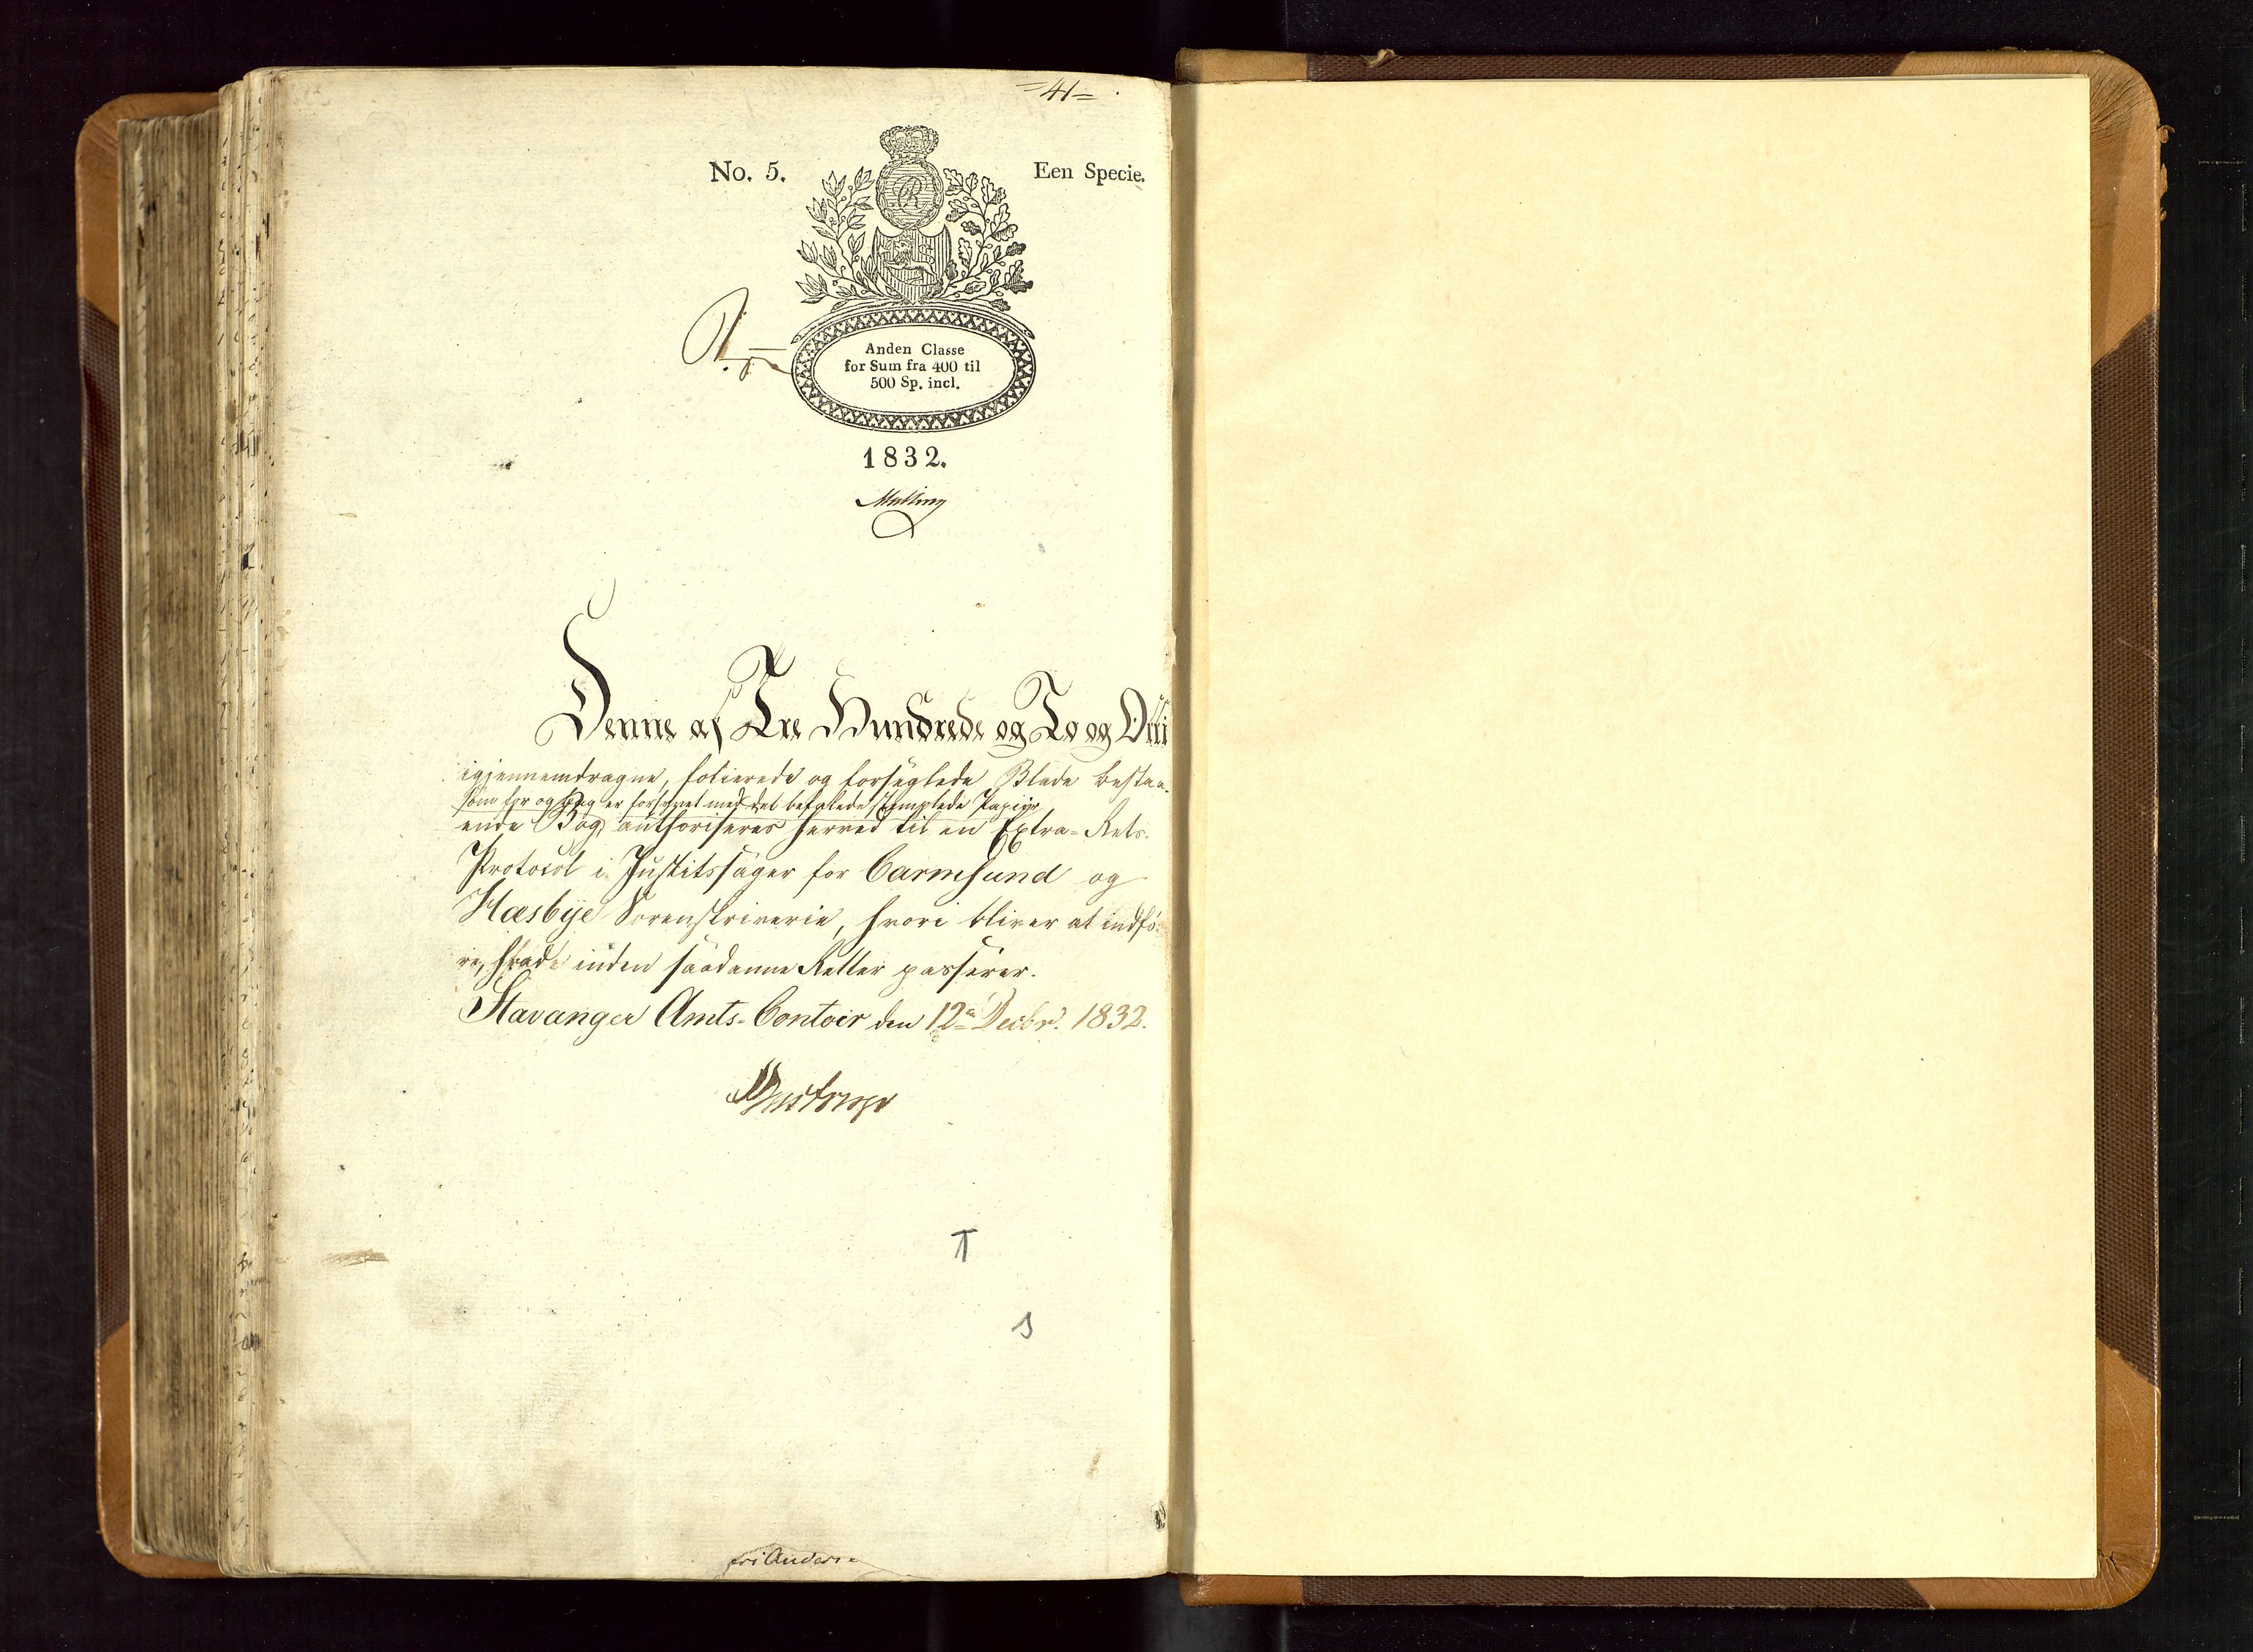 =41=
No. 5.
Een Specie.
R
Anden Classe
for Sum fra 400 til
500 Sp. incl.
1832.
Malling
Denne af Tre Hundrede og To og Otti
igjennemdragne, folierede og forseglede Blade bestaa-
som for og bag er forsynet med det befalede stemplede Papiir
ende Bog authoriseres herved til en Extra-Rets-
Protocol i Justitssager for Carmsund og
Hæsbye Sorenskriverie, hvori bliver at indfö-
re, hvad inden saadanne Retter passerer.
Stavanger Amts-Contoir den 12te Decbr. 1832.
T
S